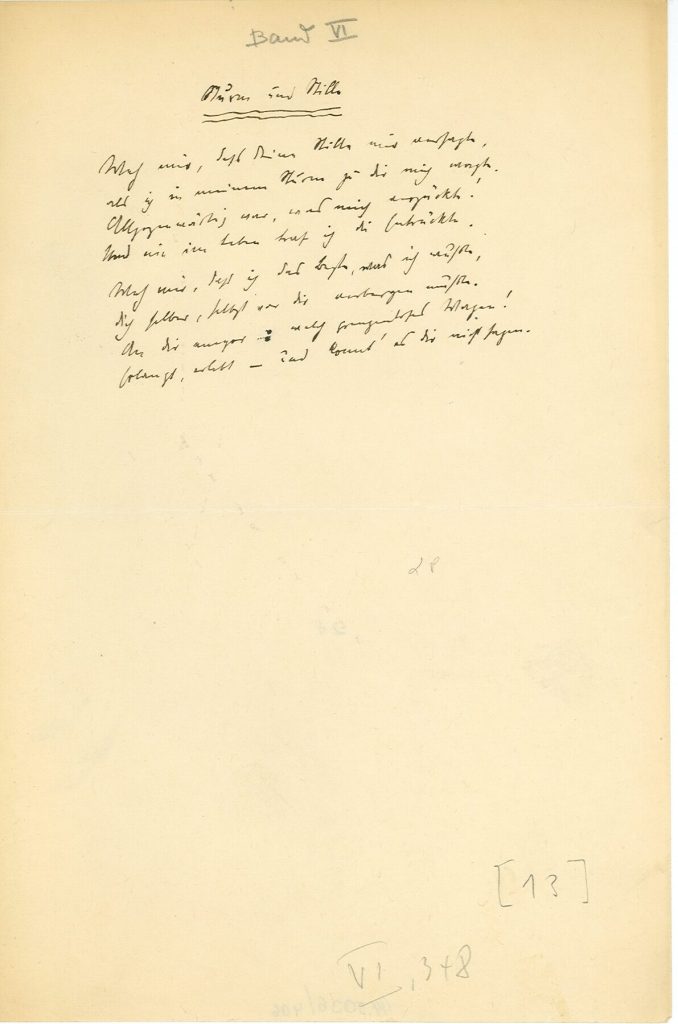 Band VI
Sturm und Stille
Weh mir, daß Deine Stille mir versagte,
als ich in meinem Sturm zu dir mich wagte.
Allgegenwärtig war, was mich entzückte!
Und wie im Leben traf ich die
Weh mir, daß ich das Beste, was ich wußte,
dich selber, selbst vor dir verbergen mußte.
An dir welch grenzenloses Wagen!
erlebt — und konnt' es dir nicht sagen.
28
[13]
VI, 348